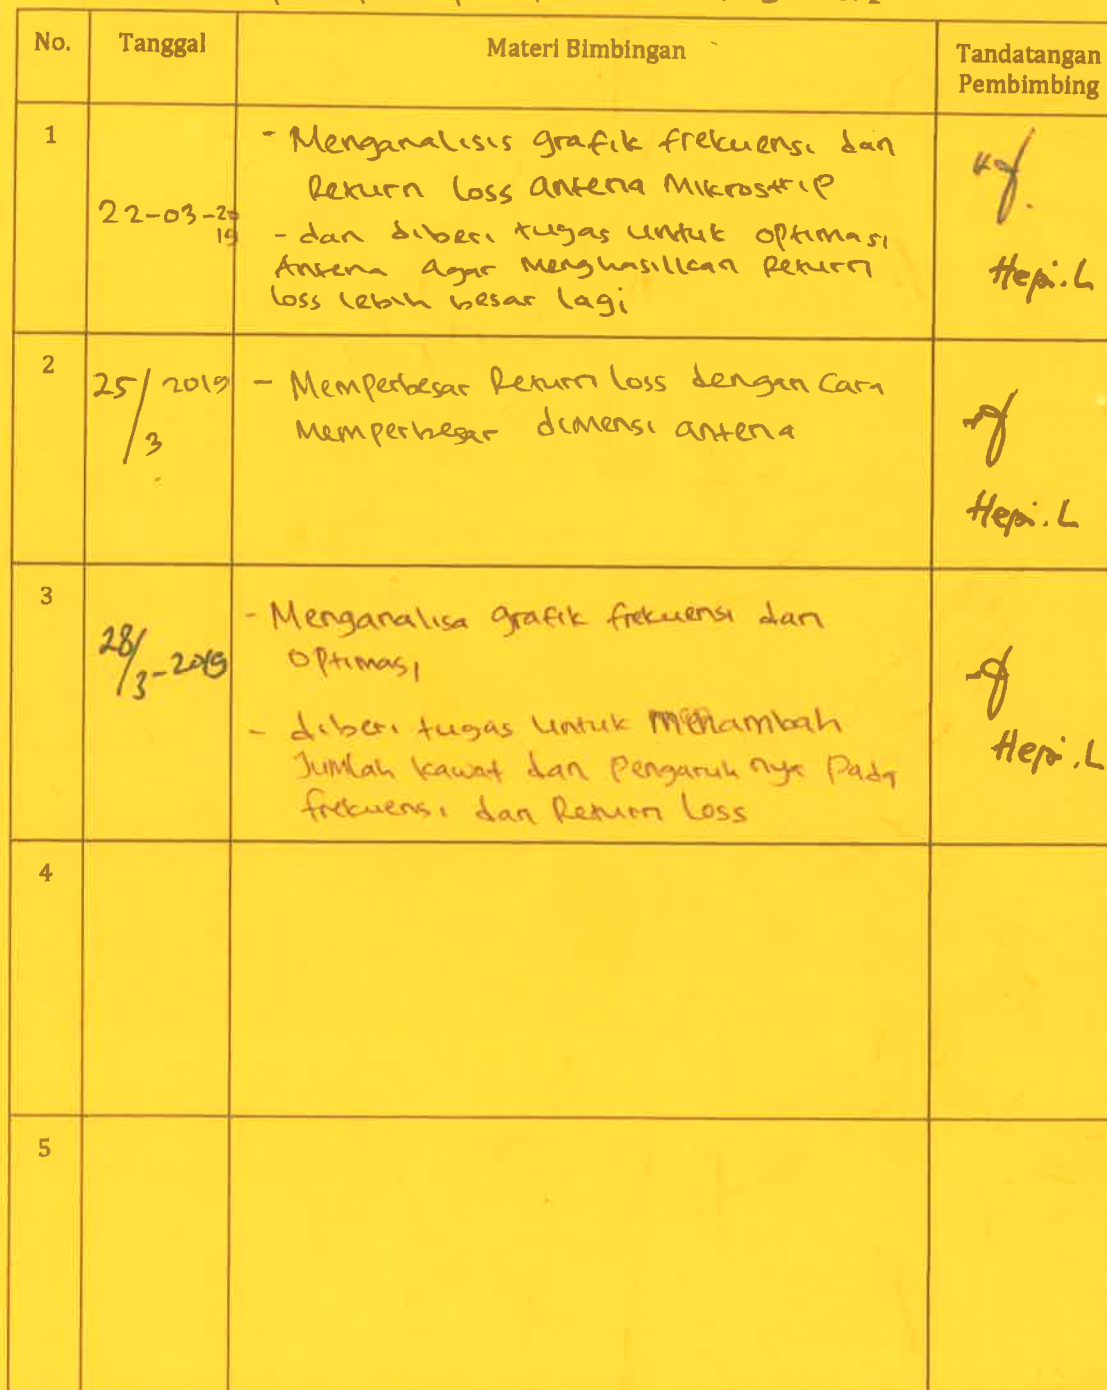 No. Tanggal Materi Bimbingan Tandatangan
Pembimbing
1
22-03-20
19
- Menganalisis grafik frekuensi dan
Return loss antena Mikrostrip
- dan diberi tugas untuk optimasi
Antena agar Menghasilkan Return
loss lebih besar lagi
Hepi.L
2
25/3 2019
- Memperbesar Return loss dengan Cara
Memperbesar dimensi antena
Hepi.L
3
28/3-2019
- Menganalisa grafik frekuensi dan
optimasi
- diberi tugas untuk menambah
Jumlah kawat dan Pengaruh nya Pada
frekuensi dan Return Loss
Hepi.L
4
5